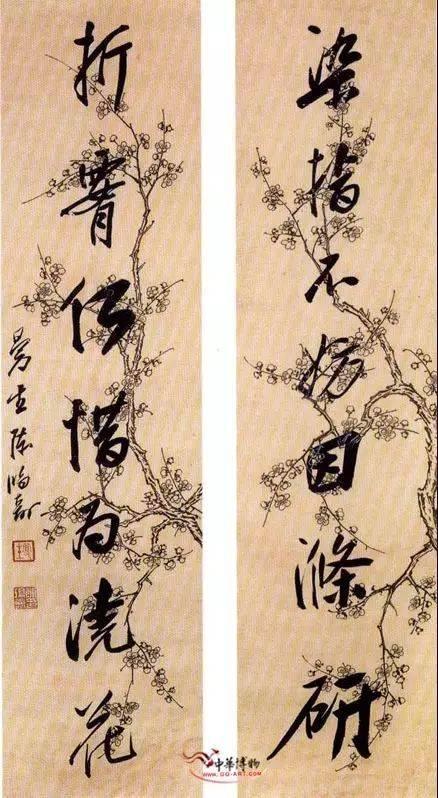 染指不妨因滌研
折腰何惜為澆花
曼生陳鴻壽
中華博物
WWW.GG-ART.COM